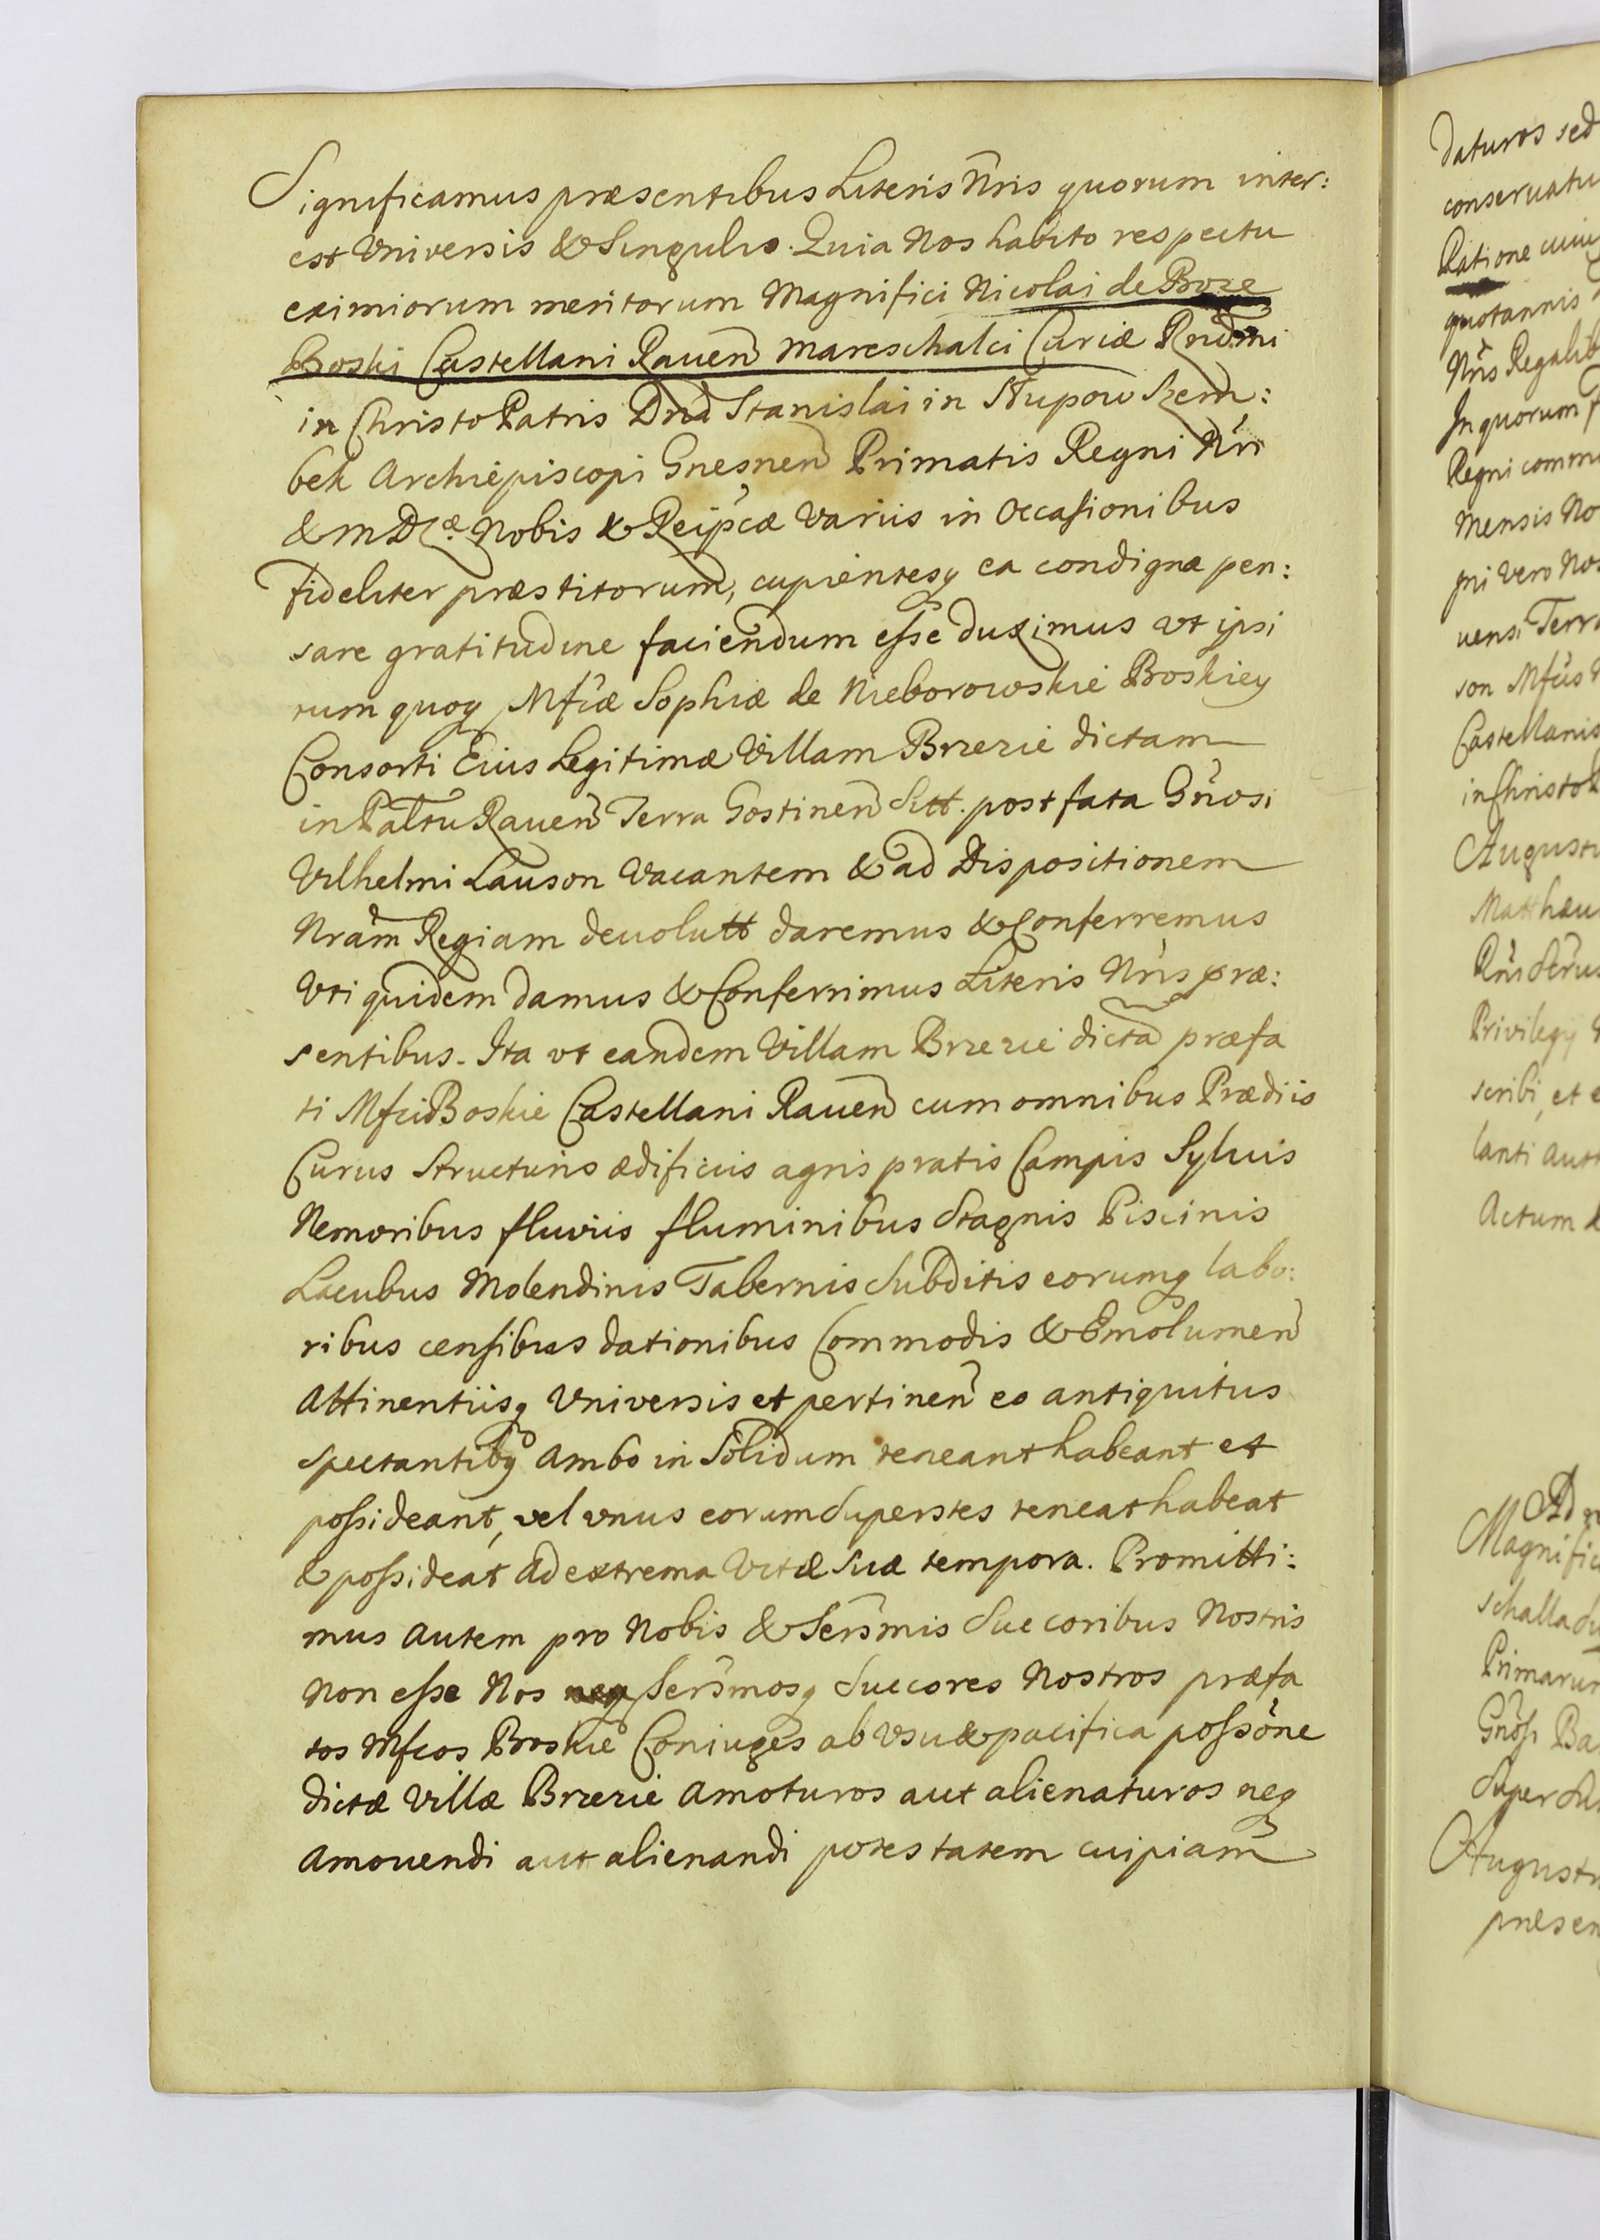 Significamus præsentibus Literis Nr̃is quorum inter:
est Vniversis & Singulis. Quia Nos habito respectu
eximiorum meritorum Magnifici Nicolai de Boze
Boski Castellani Rauen̄ Mareschalci Curiæ Rnd̃mi
in Christo Patris Dn̄a Stanislai in Słupow Szem:
bek Archiepiscopi Gnesnen̄ Primatis Regni Nr̃i
& M D L.æ Nobis & Reip̃cæ Variis in Occasionibus
fideliter præstitorum, cupientesq ea condignæ pen:
sare gratitudine faciendum esse duximus vt ipsi
rum quoq Mf̃cæ Sophiæ de Nieborowskie Boskiey
Consorti Eius Legitimæ Villam Brzezie dictam
in Pal̃tu Rauen̄ Terra Gostinen̄ Sitt. post fata Gñosi
Vilhelmi Lauson Vacantem & ad Dispositionem
Nrãm Regiam deuolutt daremus & Conferremus
Vti quidem damus & Conferrimus Literis Nr̃is præ:
sentibus. Ita vt eandem Villam Brzezie dictã præfa
ti Mfci Boskie Castellani Rauen̄ cum omnibus Prædiis
Curus Structuris ædificiis agris pratis Campis Syluis
Nemoribus fluviis fluminibus Stagnis Piscinis
Lacubus Molendinis Tabernis Subditis eorumq labo:
ribus censibus dationibus Commodis & Emolumen̄
Attinentiisq Vniversis et pertinen̄ eo antiquitus
spectantibq Ambo in Solidum teneant habeant et
possideant, vel vnus eorum Superstes teneat habeat
& possideat Ad extrema Vitæ Suæ tempora. Promitti:
mus Autem pro Nobis & Serm̃is Succoribus Nostris
Non esse Nos Serm̃osq Succores Nostros præfa
tos Mfcos Boskie Coniuges ab Vsu & pacifica possõne
dictæ Villæ Brzezie Amoturos aut alienaturos neq
Amouendi aut alienandi potestatem cuipiam
daturos sed
conseruatu
Ratione
quotannis
Nr̃is Regalib
In quorum
Regni commu
Mensis No
gni Vero Nos
uensi Terra
son Mfũs
Castellanis
in Christo P
Augusti
Matthæu
Privilegij
scribi, et e
lanti aut
Actum
Ad
Magnific
schalla
Primarum
Gnosi Ba
Super
Augusti
præsen